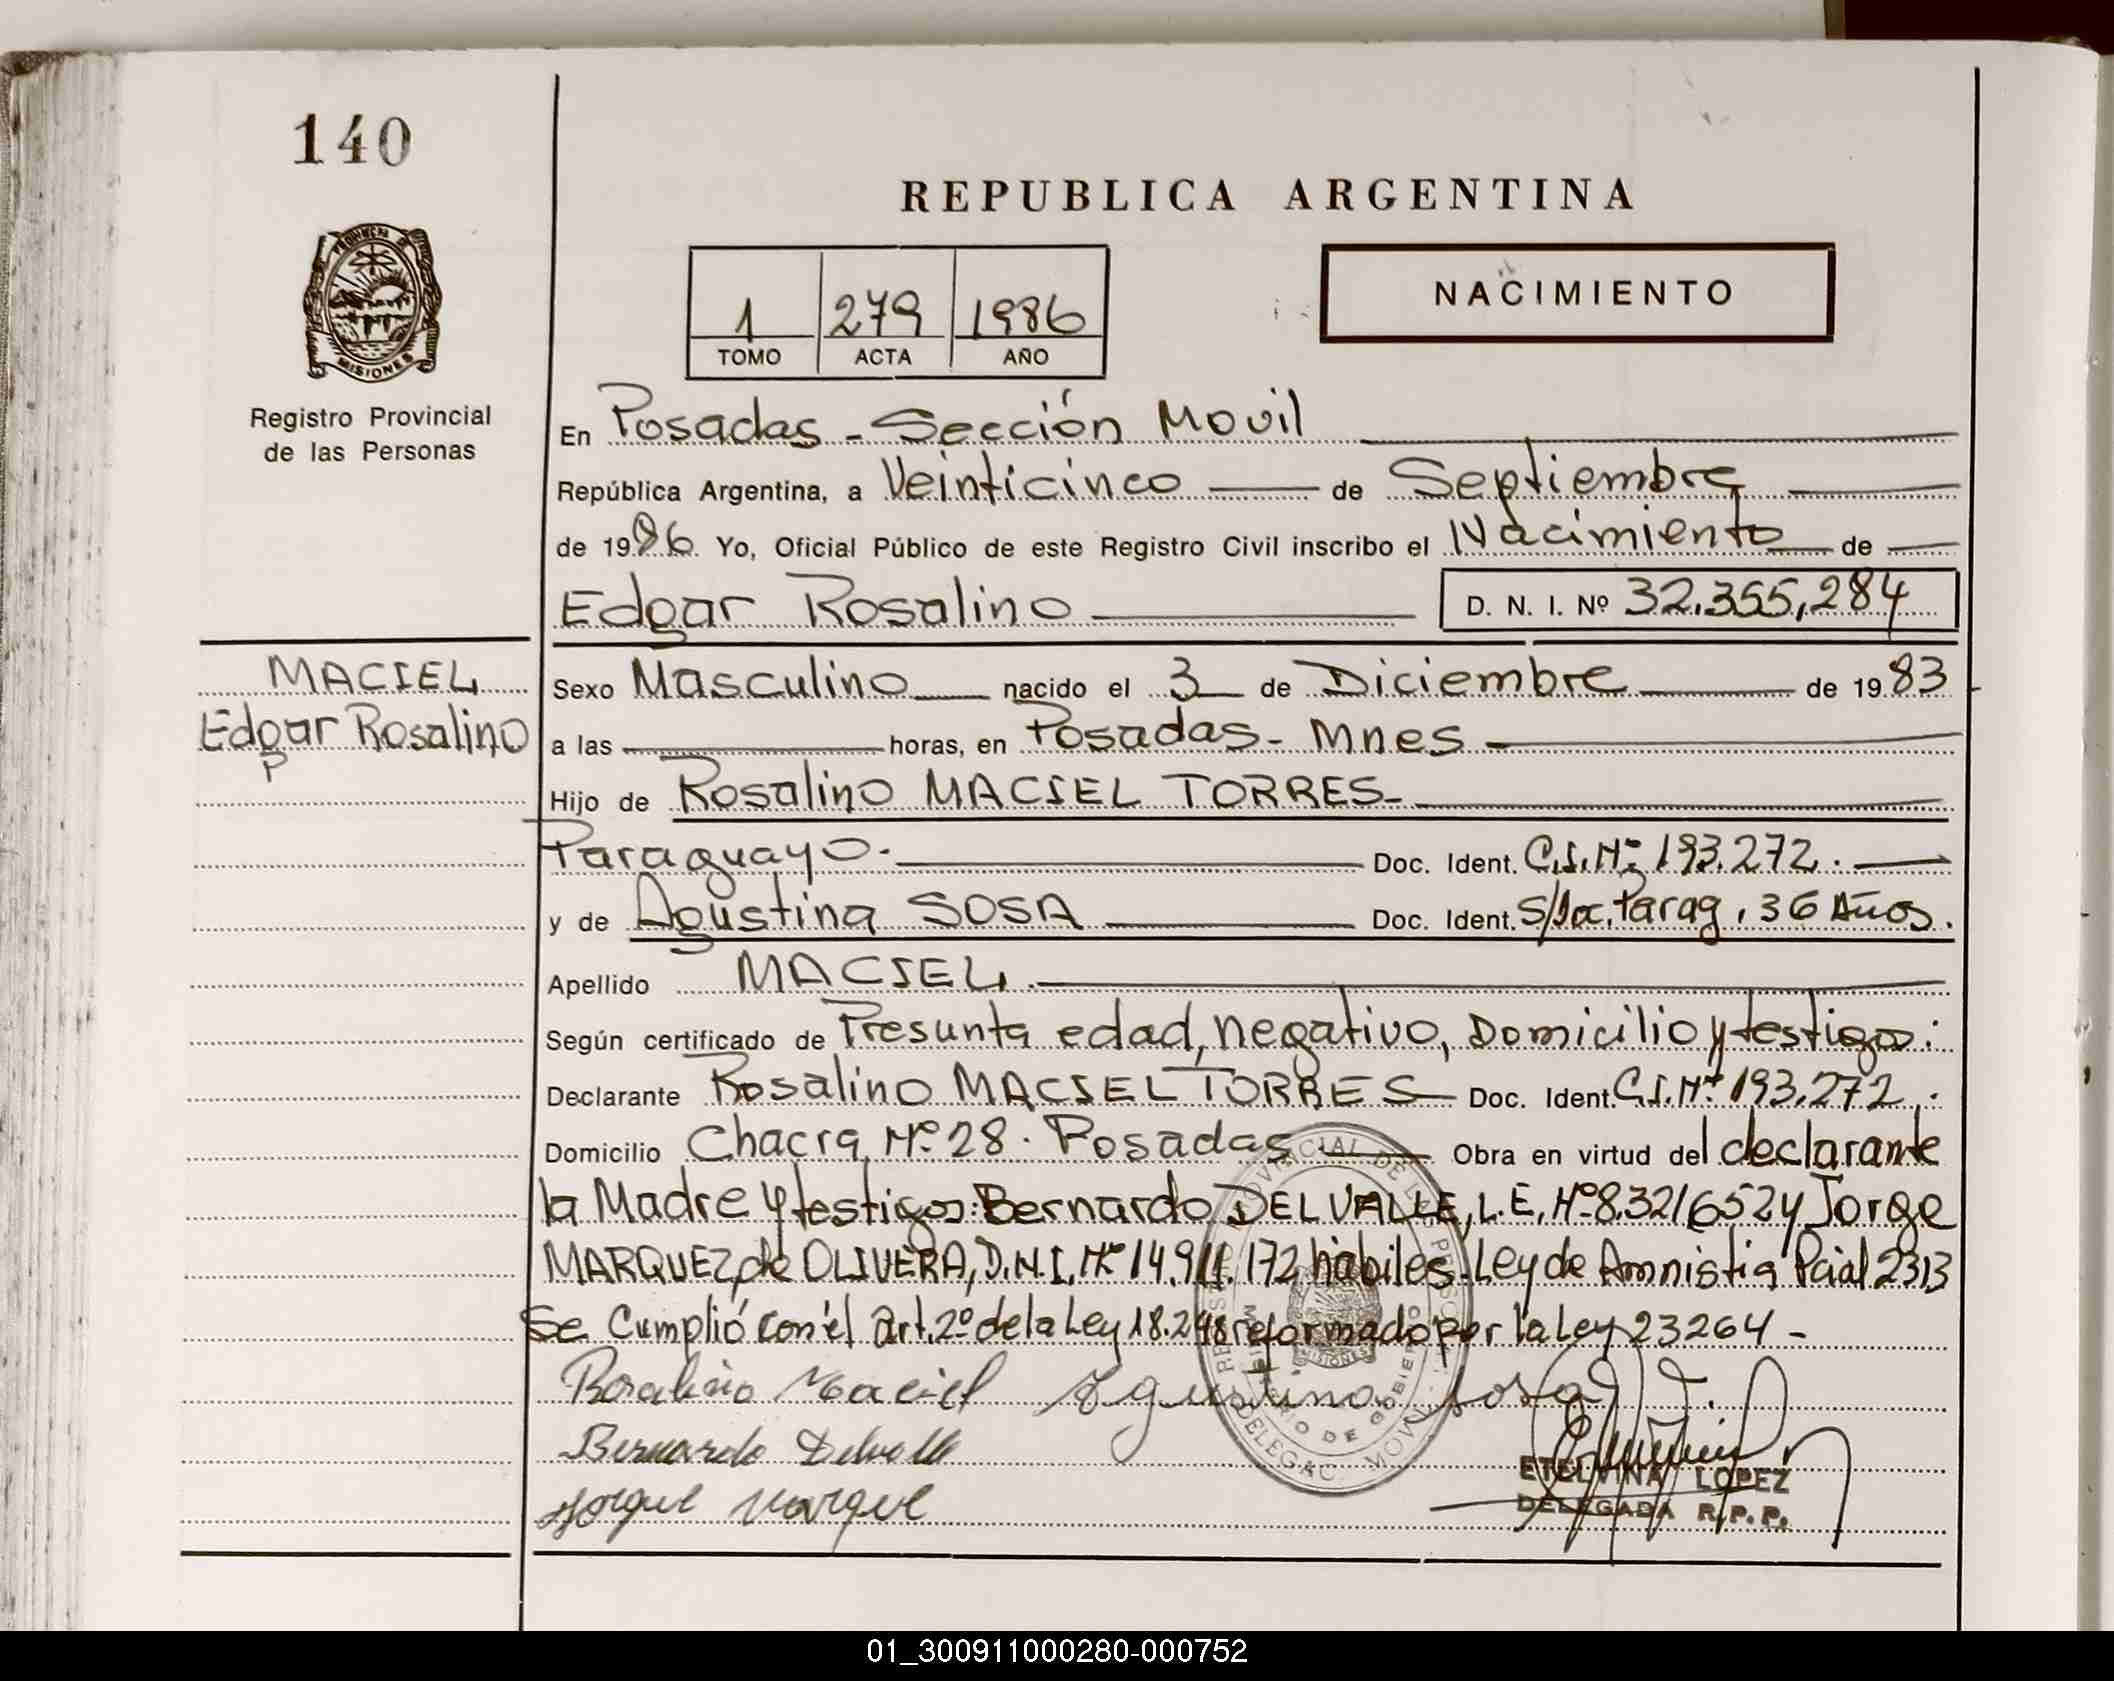 140
REPUBLICA ARGENTINA
PROVINCIA DE MISIONES
1 279 1986
TOMO ACTA AÑO
NACIMIENTO
Registro Provincial
de las Personas
En Posadas - Sección Movil
República Argentina, a Veinticinco de Septiembre
de 1986. Yo, Oficial Público de este Registro Civil inscribo el Nacimiento de
Edgar Rosalino D. N. I. Nº 32.355,284
MACIEL
Edgar Rosalino
P
Sexo Masculino nacido el 3 de Diciembre de 1983
a las horas, en Posadas - Mnes
Hijo de Rosalino MACIEL TORRES
Paraguayo. Doc. Ident. C.I.Nº 193.272.
y de Agustina SOSA Doc. Ident. S/Doc. Parag, 36 Años.
Apellido MACIEL.
Según certificado de Presunta edad, negativo, Domicilio y testigos:
Declarante Rosalino MACIEL TORRES Doc. Ident. C.I.Nº 193.272.
Domicilio Chacra Nº 28. Posadas Obra en virtud del declarante
la Madre y testigos: Bernardo DEL VALLE, L.E. Nº 8.321652 y Jorge
MARQUEZ de OLIVERA, D.N.I. Nº 14.911.172 hábiles. Ley de Amnistia Pcial 2313
Se Cumplió con el art. 2º de la Ley 18.248 reformado por la Ley 23264 -
Rosalino Maciel Agustina Sosa
Bernardo Delvalle
Jorgue Marque
ETELVINA LOPEZ
DELEGADA R.P.P.
01_300911000280-000752